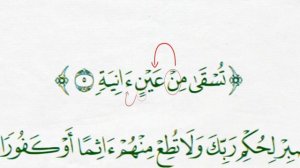 ﴿ تُسْقَىٰ مِنْ عَيْنٍ ءَانِيَةٍ ۝٥ ﴾
لِحُكْمِ رَبِّكَ وَلَا تُطِعْ مِنْهُمْ ءَاثِمًا أَوْ كَفُورًا